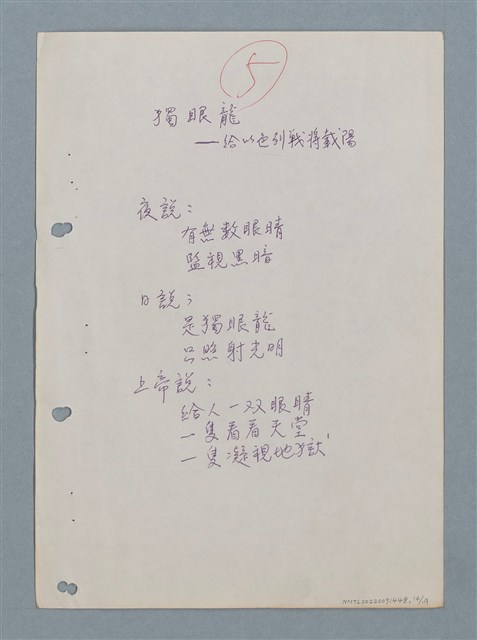 5
獨眼龍
——給以色列戰將戴陽
夜說：
有無數眼睛
監視黑暗
日說；
是獨眼龍
只照射光明
上帝說：
給人一双眼睛
一隻看看天堂
一隻凝視地獄